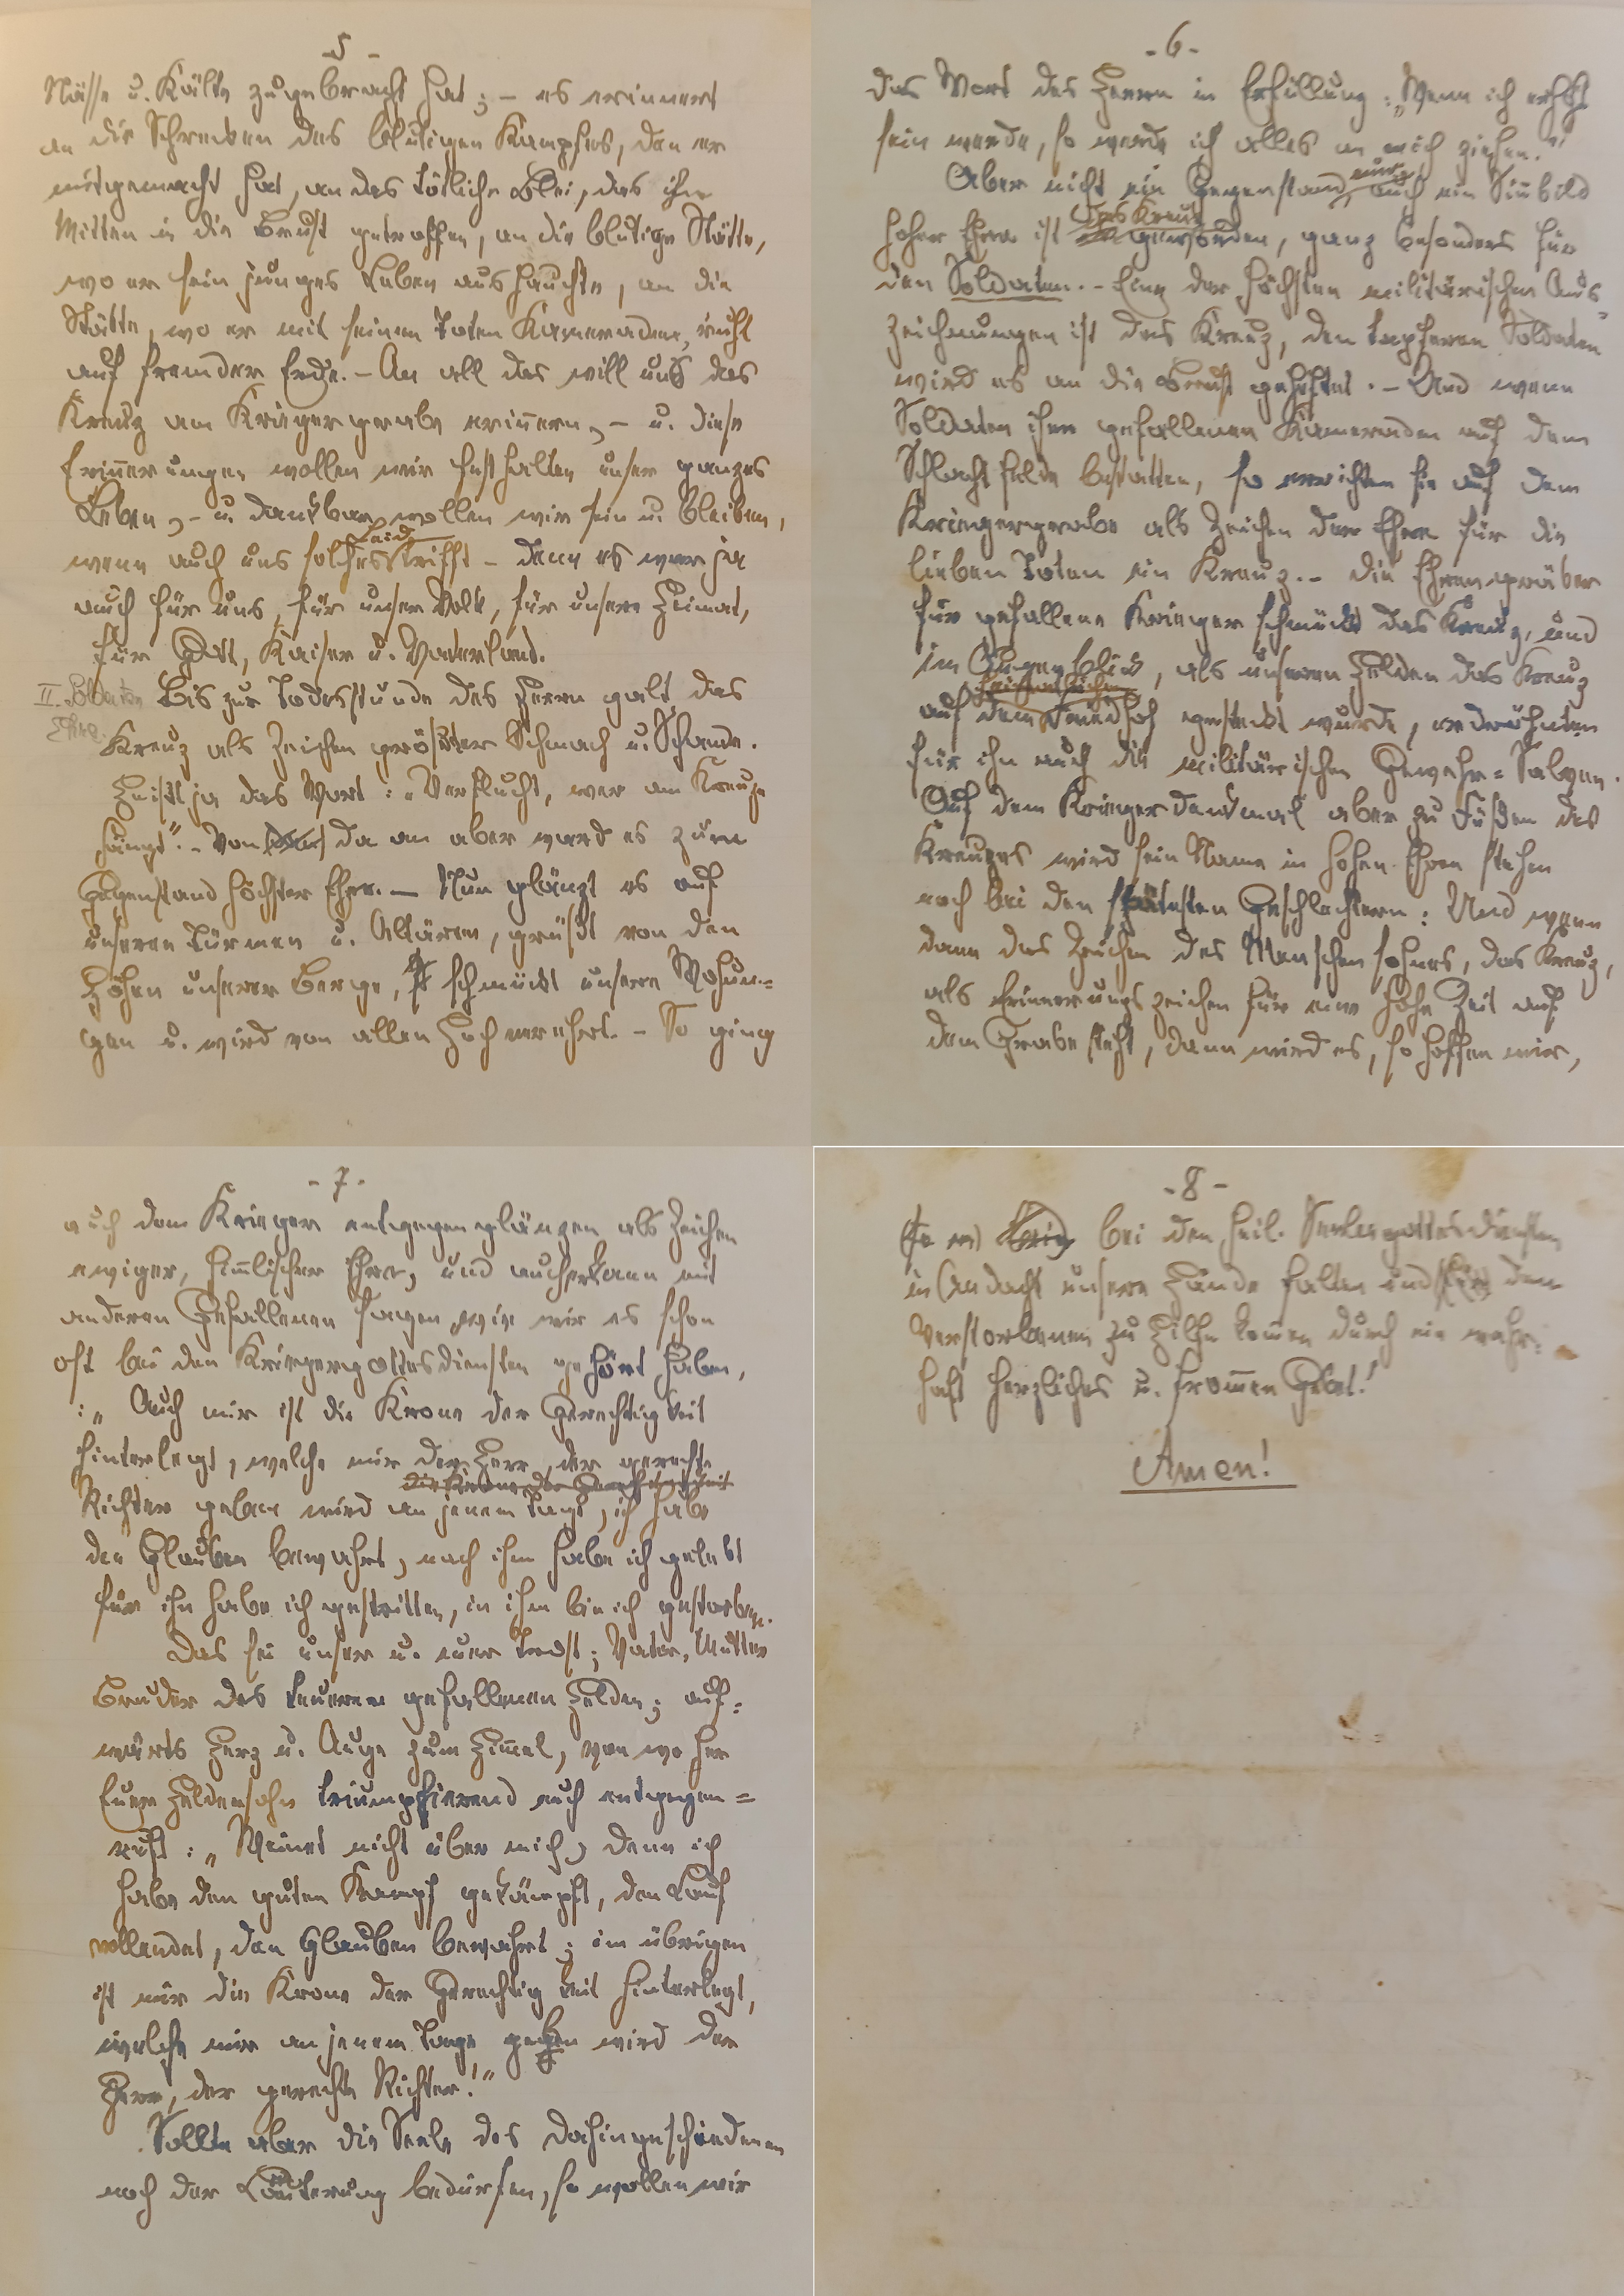 - 5 -
Nässe u. Kälte zugebracht hat; – es erinnert
an die Schrecken des blutigen Kampfes, den er
mitgemacht hat, an das tötliche Blei, das ihn
Mitten in die Brust getroffen, an die blutige Stätte,
wo er sein junges Leben aushauchte, an die
Stätte, wo er mit seinen toten Kameraden, ruht
auf fremder Erde. – An all das will uns das
Kreuz am Kriegergrabe erinnern, – u. diese
Erinnerungen wollen wir festhalten unser ganzes
Leben, – u. dankbar wollen wir sein u. bleiben,
Leid
wenn auch uns solches trifft – denn es war ja
auch für uns, für unser Volk, für unsere Heimat,
für Gott, Kaiser u. Vaterland.
II. Soldaten Bis zur Todesstunde des Herrn galt das
Ehre. Kreuz als Zeichen größter Schmach u. Schande.
Heißt ja das Wort: „Verflucht, wer am Kreuze
hängt“. – Von da an aber ward es zum
Gegenstand höchster Ehre. – Nun glänzt es auf
unseren Türmen u. Altären, grüßt von den
Höhen unserer Berge, schmückt unsere Wohun-=
gen u. wird von allen Hoch verehrt. – So ging
- 6 -
das Wort des Herrn in Erfüllung: „Wenn ich erhöht
sein werde, so werde ich alles an mich ziehen.“
Aber nicht ein Gegenstand, auch ein Sinnbild
das Kreuz
hoher Ehre ist geworden, ganz besonders für
den Soldaten. – Eine der höchsten militärischen Aus-
zeichnungen ist das Kreuz, den tapferen Soldaten
wird es an die Brust geheftet. – Und wenn
Soldaten ihre gefallenen Kameraden auf dem
Schlachtfelde bestatten, so errichten sie auf dem
Kriegergrabe als Zeichen der Ehre für die
lieben Toten ein Kreuz. – Die Ehrengräber
für gefallene Krieger schmückt das Kreuz, und
im Augenblick, als unseren Helden das Kreuz
heimatlichen
auf dem Friedhof gesteckt wurde, erdröhnten
für ihn auch die militärischen Gewehr=Salven.
Auf dem Kriegerdenkmal aber zu Füßen des
Kreuzes wird sein Name in hohen Ehren stehen
noch bei den spätesten Geschlechtern: Und wenn
dann das Zeichen des Menschensohnes, das Kreuz,
als Erinnerungszeichen für eine hohe Zeit auf
dem Grabe steht, dann wird es, so hoffen wir,
- 7 -
auch dem Krieger entgegenglänzen als Zeichen
ewiger, himmlischer Ehre, und auch er kann mit
anderen Gefallenen sagen, wie wir es schon
oft bei den Kriegergottesdiensten gehört haben,
: „Auch mir ist die Krone der Gerechtigkeit
hinterlegt, welche mir der Herr, der gerechte
die Krone der Gerechtigkeit
Richter geben wird an jenem Tage, ich habe
den Glauben bewahrt, nach ihm habe ich gelebt
für ihn habe ich gestritten, in ihm bin ich gestorben.
Das sei unser u. euer Trost; Vater, Mutter
Bruder des teueren gefallenen Helden; auf=
wärts Herz u. Auge zum Himmel, von wo her
Euer Heldensohn triumpfierend euch entgegen=
ruft: „Weinet nicht über mich, denn ich
habe den guten Kampf gekämpft, den Lauf
vollendet, den Glauben bewahrt; im übrigen
ist mir die Krone der Gerechtigkeit hinterlegt,
welche mir an jenem Tage geben wird der
Herr, der gerechte Richter!“
Sollte aber die Seele des dahingeschiedenen
noch der Läuterung bedürfen, so wollen wir
- 8 -
bei den heil. Seelengottesdiensten
in Andacht unsere Hände falten und dem
Verstorbenen zu Hilfe kommen durch ein wahr=
haft herzliches u. frommen Gebet!
Amen!